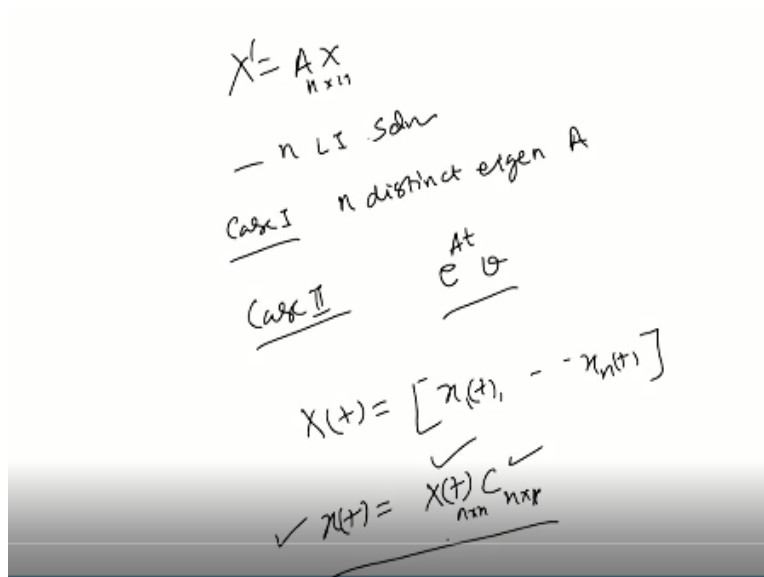 X' = AX n×n
– n LI Soln
Case I n distinct eigen A
Case II e^{At} v
X(t) = [x₁(t), - - xₙ(t)]
✓ x(t) = X(t) n×n C n×1 ✓ ✓